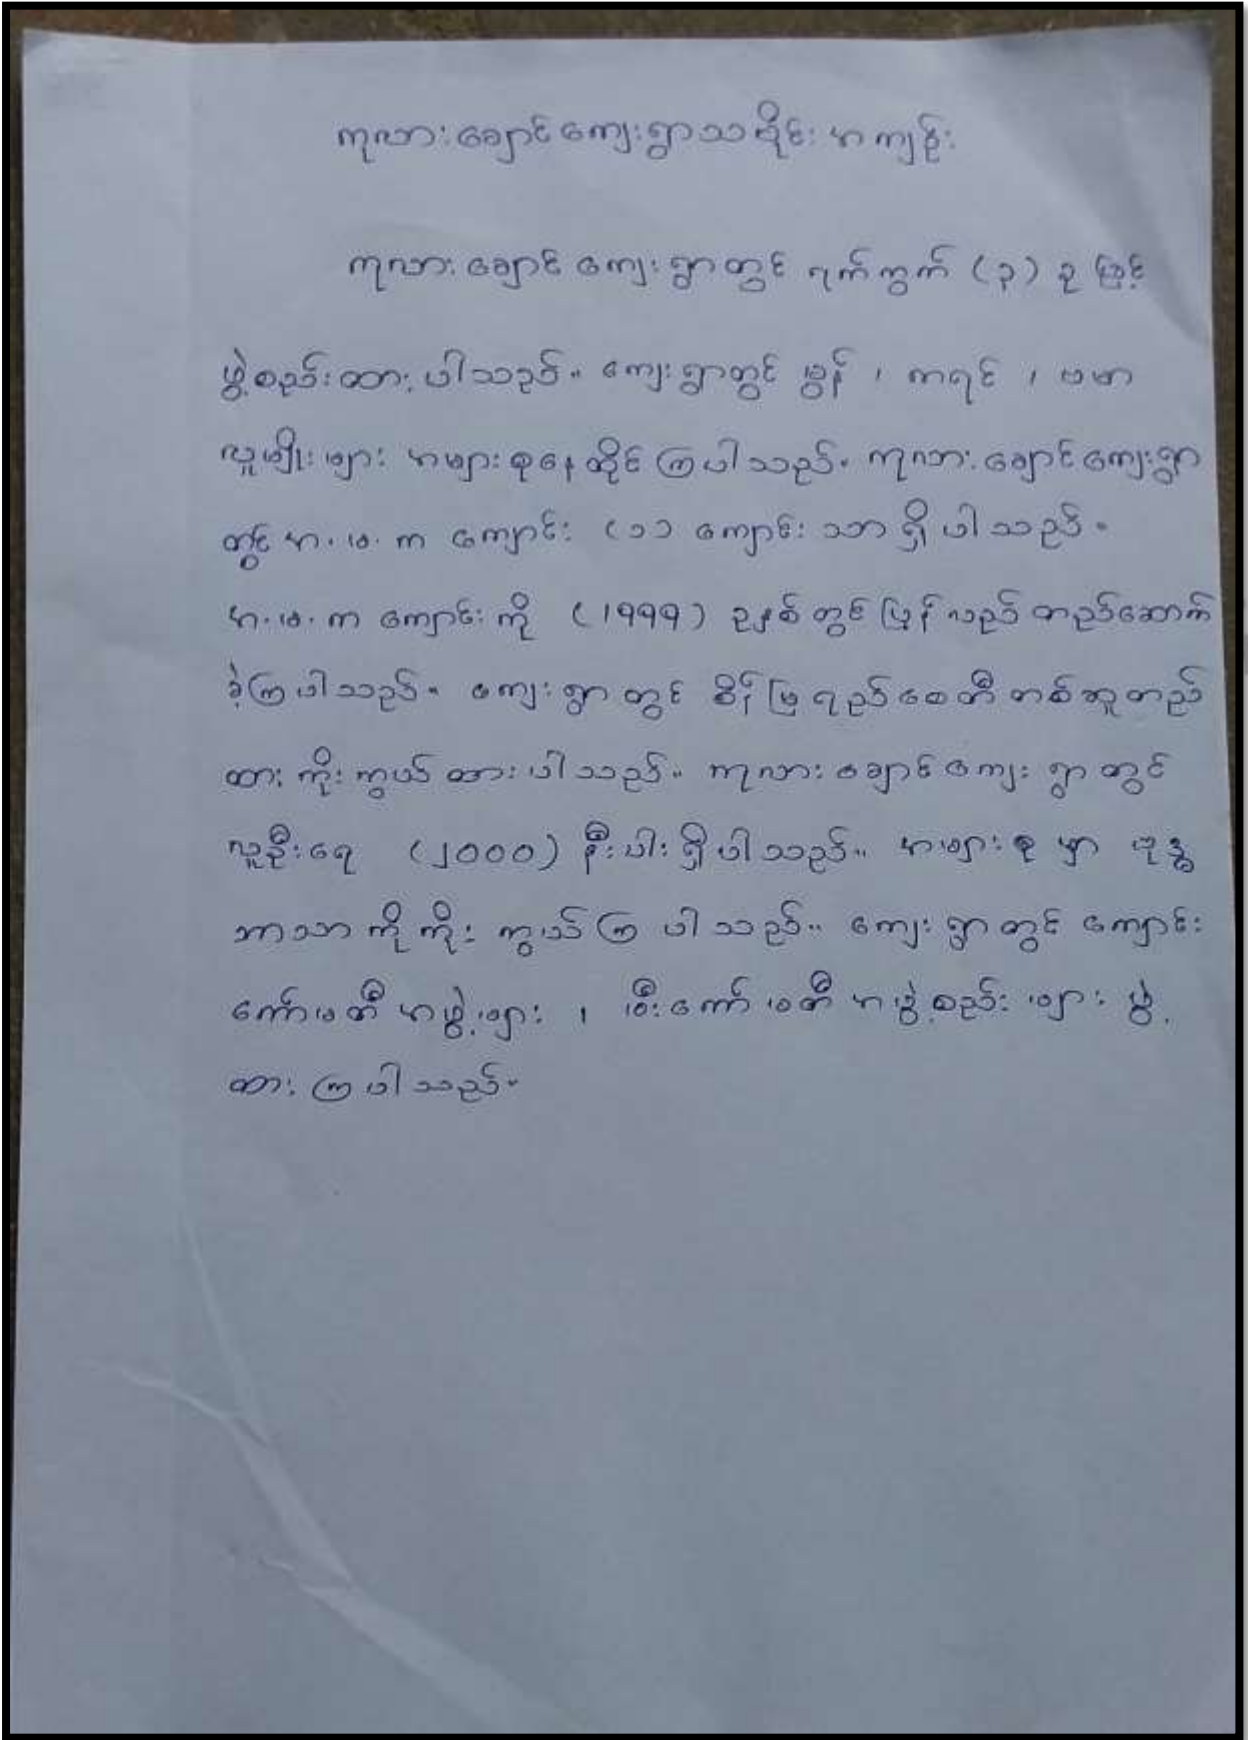 ကုလားချောင်ကျေးရွာသမိုင်း အကျဉ်း
ကုလားချောင် ကျေးရွာတွင် ရက်ကွက် (၃) ခု ဖြင့်
ဖွဲ့စည်းထားပါသည်။ ကျေးရွာတွင် မွန် ၊ ကရင် ၊ ဗမာ
လူမျိုးများ အများစုနေထိုင်ကြပါသည်။ ကုလားချောင်ကျေးရွာ
တွင် အ.မ.က ကျောင်း (၁) ကျောင်းသာ ရှိပါသည်။
အ.မ.က ကျောင်းကို (1999) ခုနှစ်တွင် ပြန်လည် တည်ဆောက်
ခဲ့ကြပါသည်။ ကျေးရွာတွင် စိန်မြရည်စေတီ တစ်ဆူတည်
ထား ကိုးကွယ်ထားပါသည်။ ကုလားချောင်ကျေးရွာတွင်
လူဦးရေ (၂၀၀၀) နီးပါးရှိပါသည်။ အများစုမှာ ဗုဒ္ဓ
ဘာသာကို ကိုးကွယ်ကြပါသည်။ ကျေးရွာတွင် ကျောင်း
ကော်မတီအဖွဲ့များ ၊ မီးကော်မတီ အဖွဲ့စည်းများ ဖွဲ့
ထားကြပါသည်။